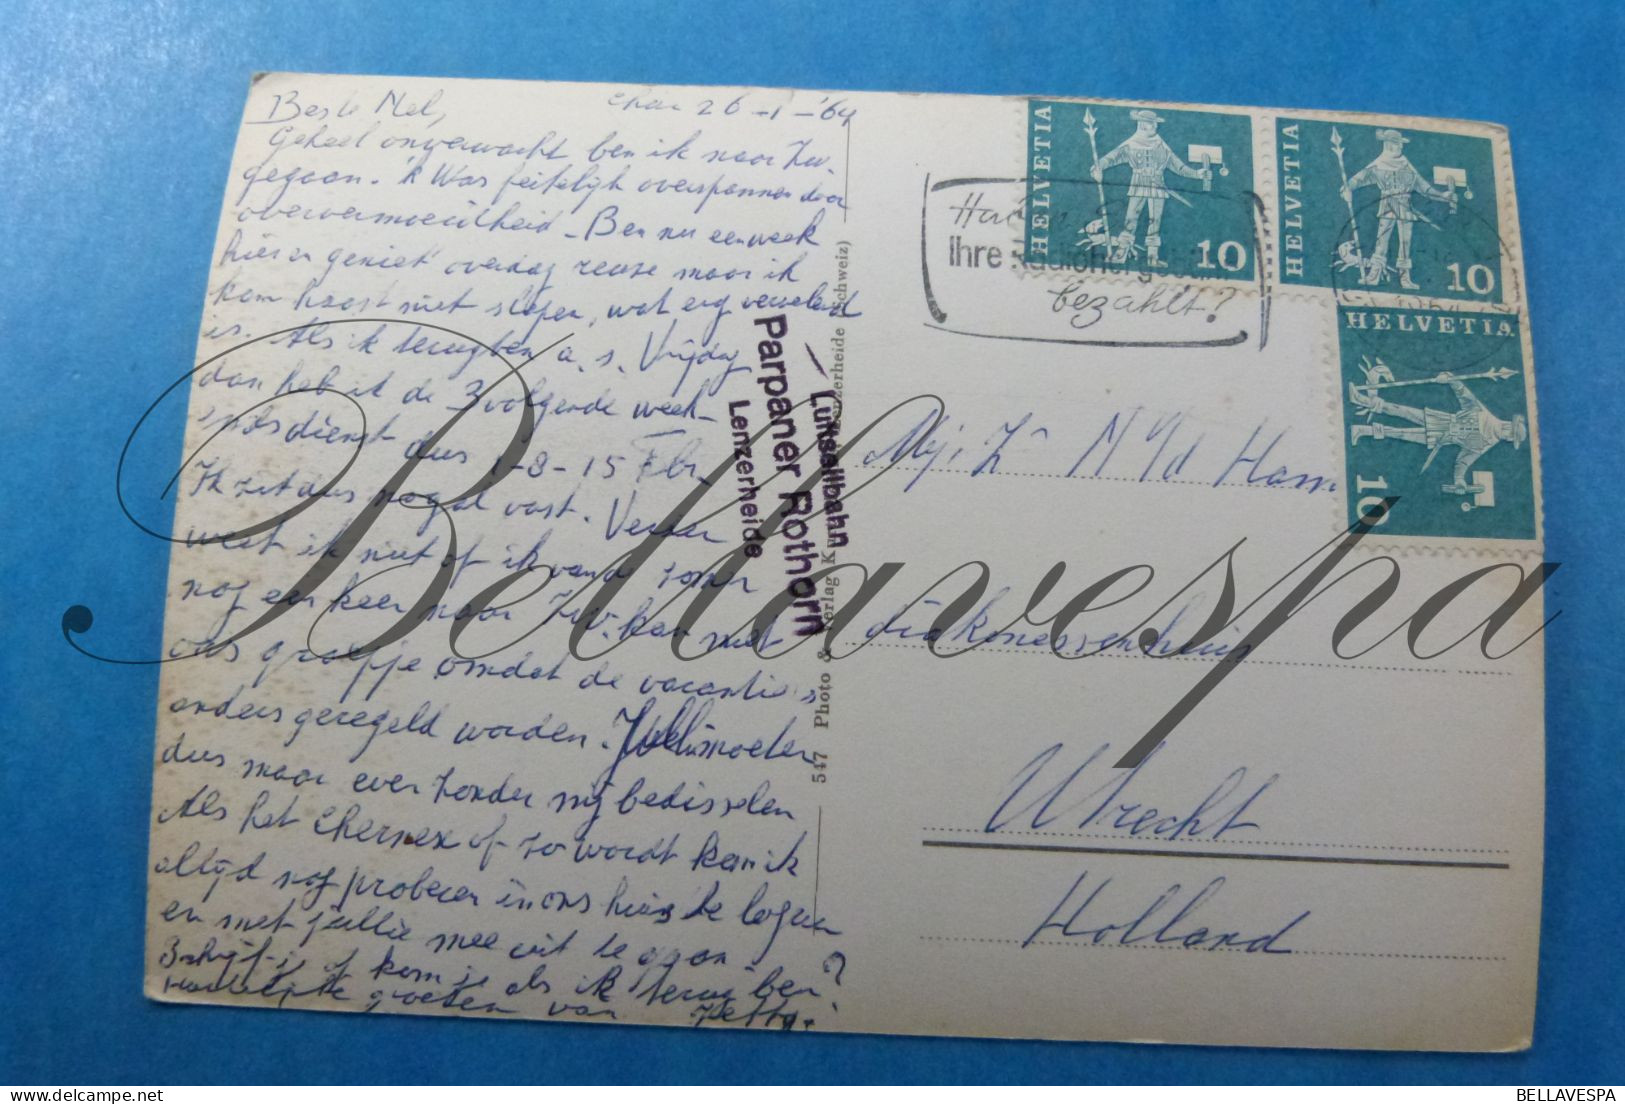 Beste Nel, Chur 26-1-'64
Geheel onverwacht ben ik naar Zw.
gegaan. 'k Was feitelijk overspannen door
oververmoeidheid - Ben nu een week
hier en geniet overdag reuze maar ik
kan haast niet slapen, wat erg vervelend
is. Als ik terug ben a.s. Vrijdag
dan heb ik de 3 volgende week-
endsdienst dus 1-8-15 Febr.
Ik zit dus nogal vast. Verder
weet ik niet of ik van de zomer
nog een keer naar Zw. kan met
ons groepje omdat de vacanties
anders geregeld worden. Jullie moeten
dus maar even zonder mij bedisselen
Als het Chernex of zo wordt kan ik
altijd nog proberen in ons huis te logeren
en met jullie mee uit te gaan
Schrijf je of kom je als ik terug ben?
Hartelijke groeten van
HELVETIA 10
HELVETIA 10
HELVETIA 10
Ihre Radiohörgebühr
bezahlt?
Luftseilbahn
Parpaner Rothorn
Lenzerheide
547 Photo & Verlag Lenzerheide (Schweiz)
Mej. Z N v/d Ham
diakonessenhuis
Utrecht
Holland
Bellavespa
BELLAVESPA